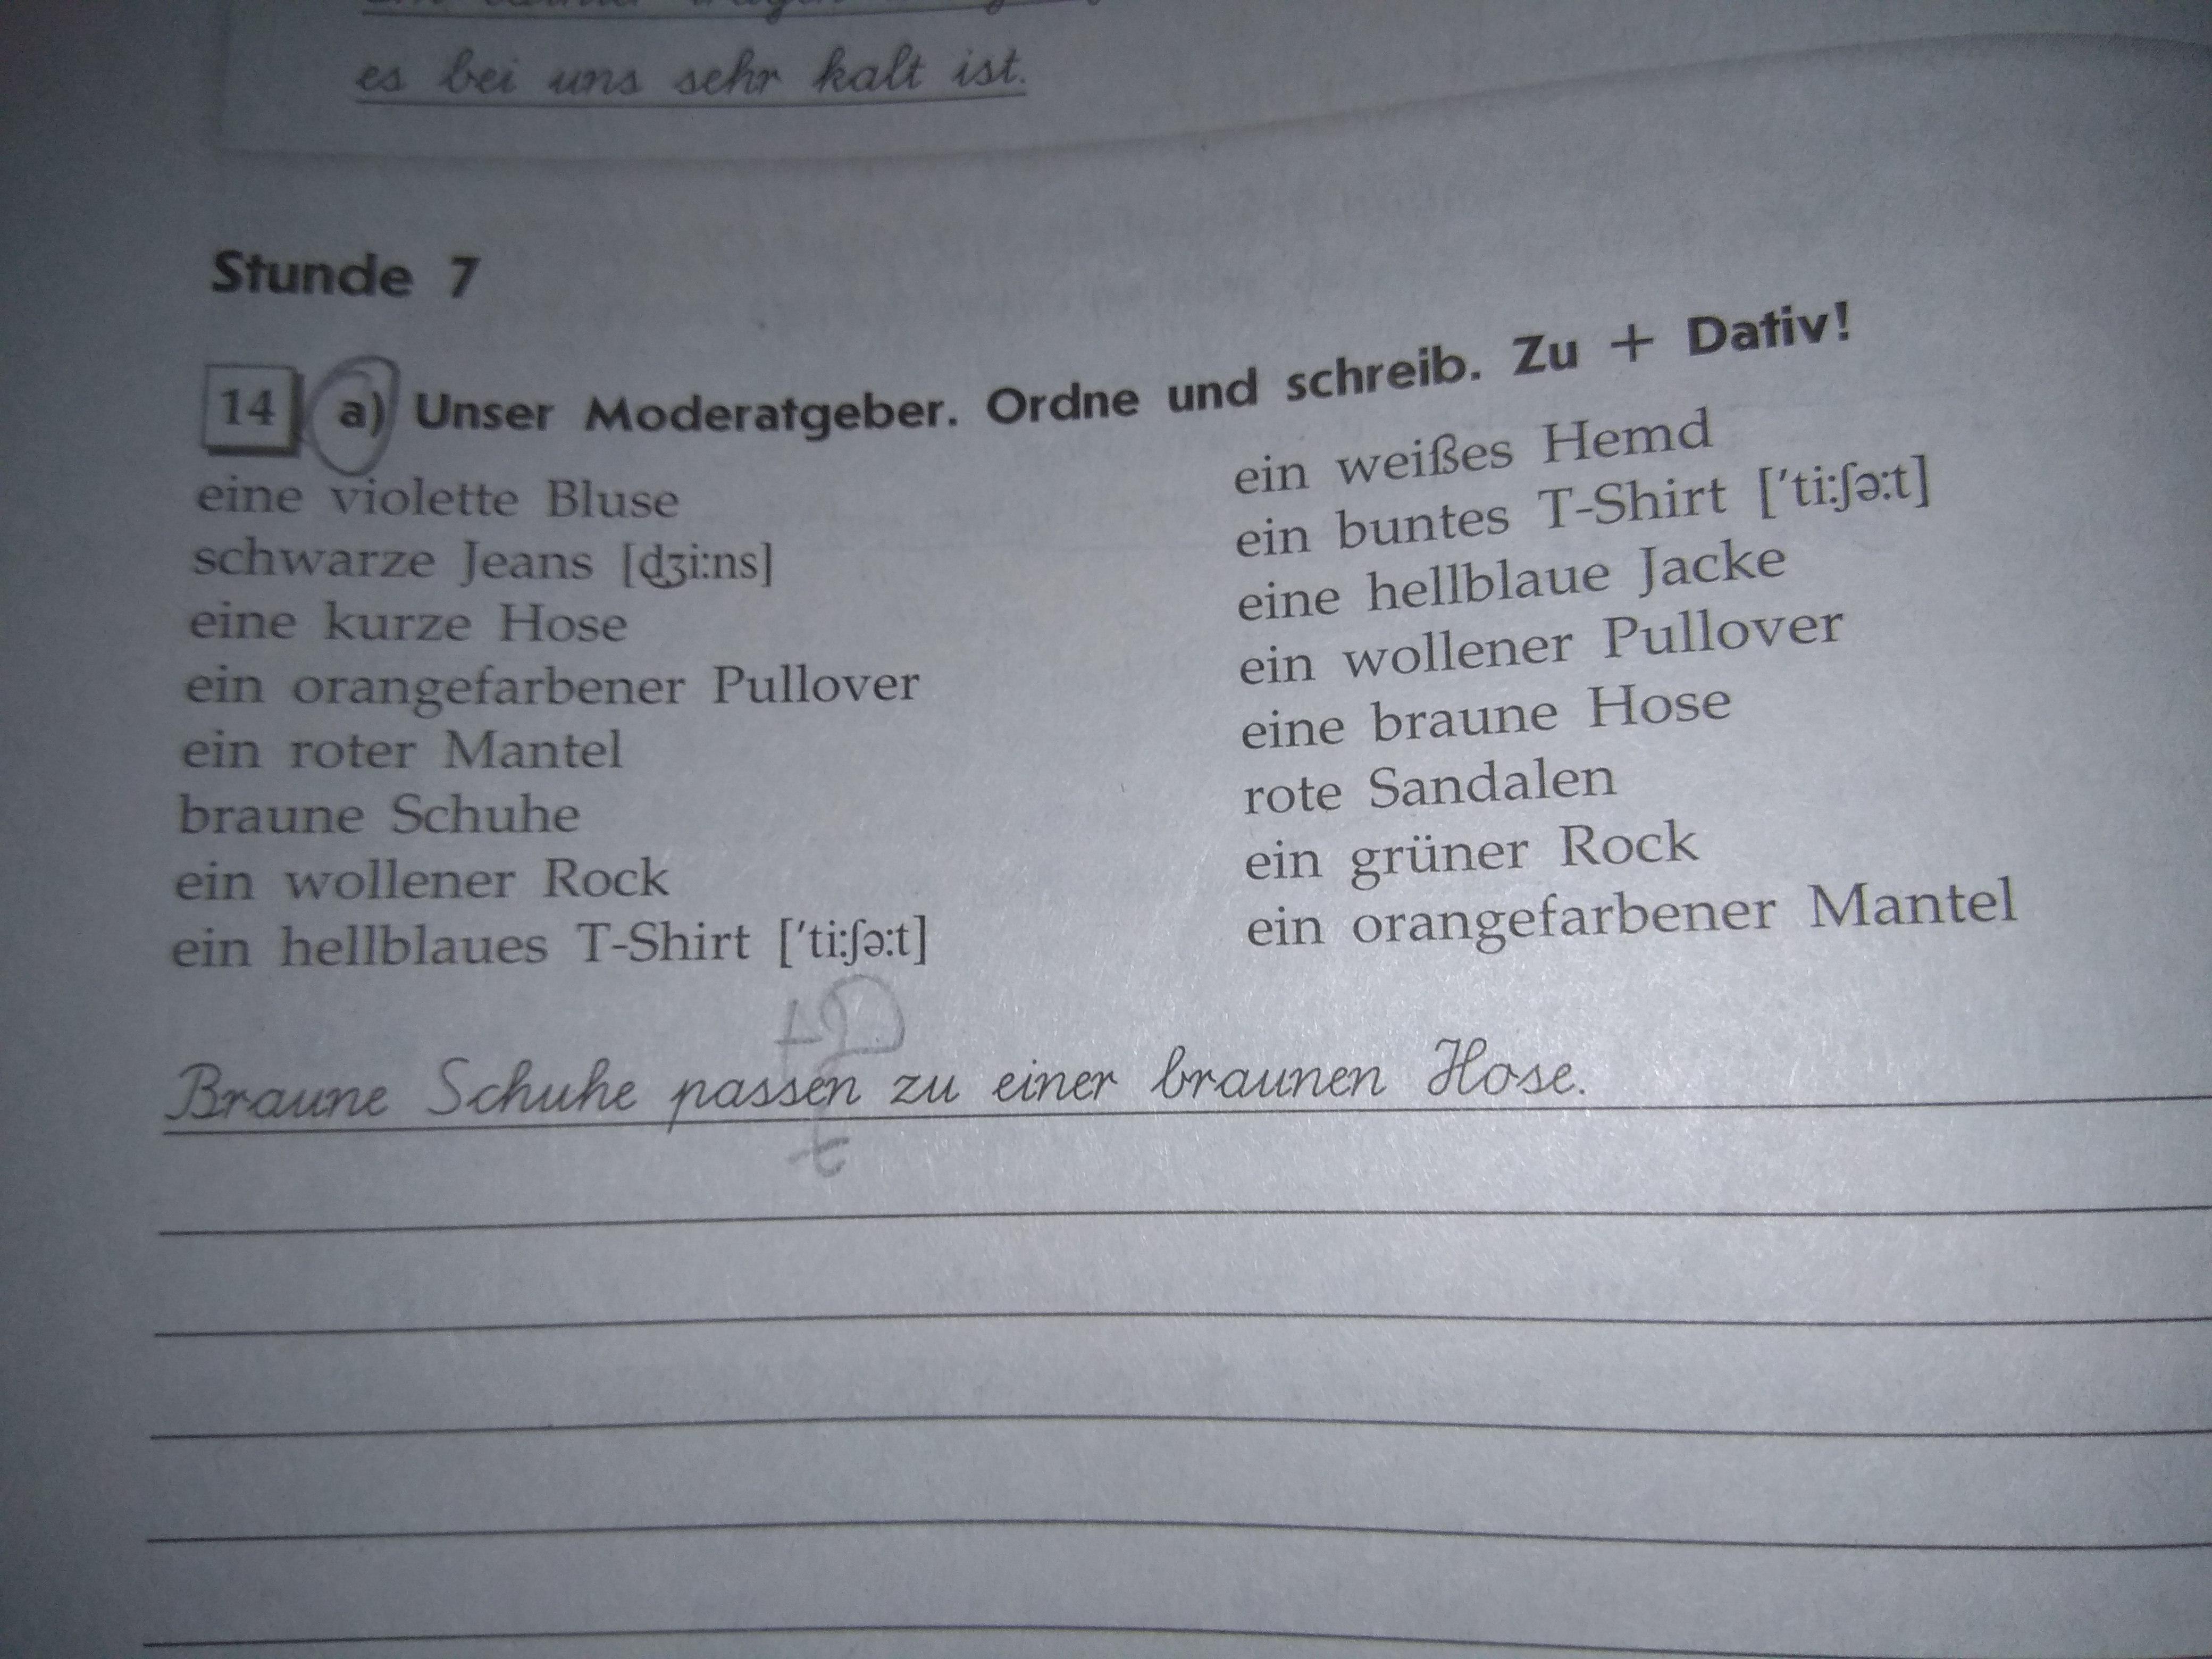 es bei uns sehr kalt ist.
Stunde 7
14 a) Unser Moderatgeber. Ordne und schreib. Zu + Dativ!
eine violette Bluse
schwarze Jeans [dʒi:ns]
eine kurze Hose
ein orangefarbener Pullover
ein roter Mantel
braune Schuhe
ein wollener Rock
ein hellblaues T-Shirt ['ti:ʃə:t]
ein weißes Hemd
ein buntes T-Shirt ['ti:ʃə:t]
eine hellblaue Jacke
ein wollener Pullover
eine braune Hose
rote Sandalen
ein grüner Rock
ein orangefarbener Mantel
Braune Schuhe passen zu einer braunen Hose.
t